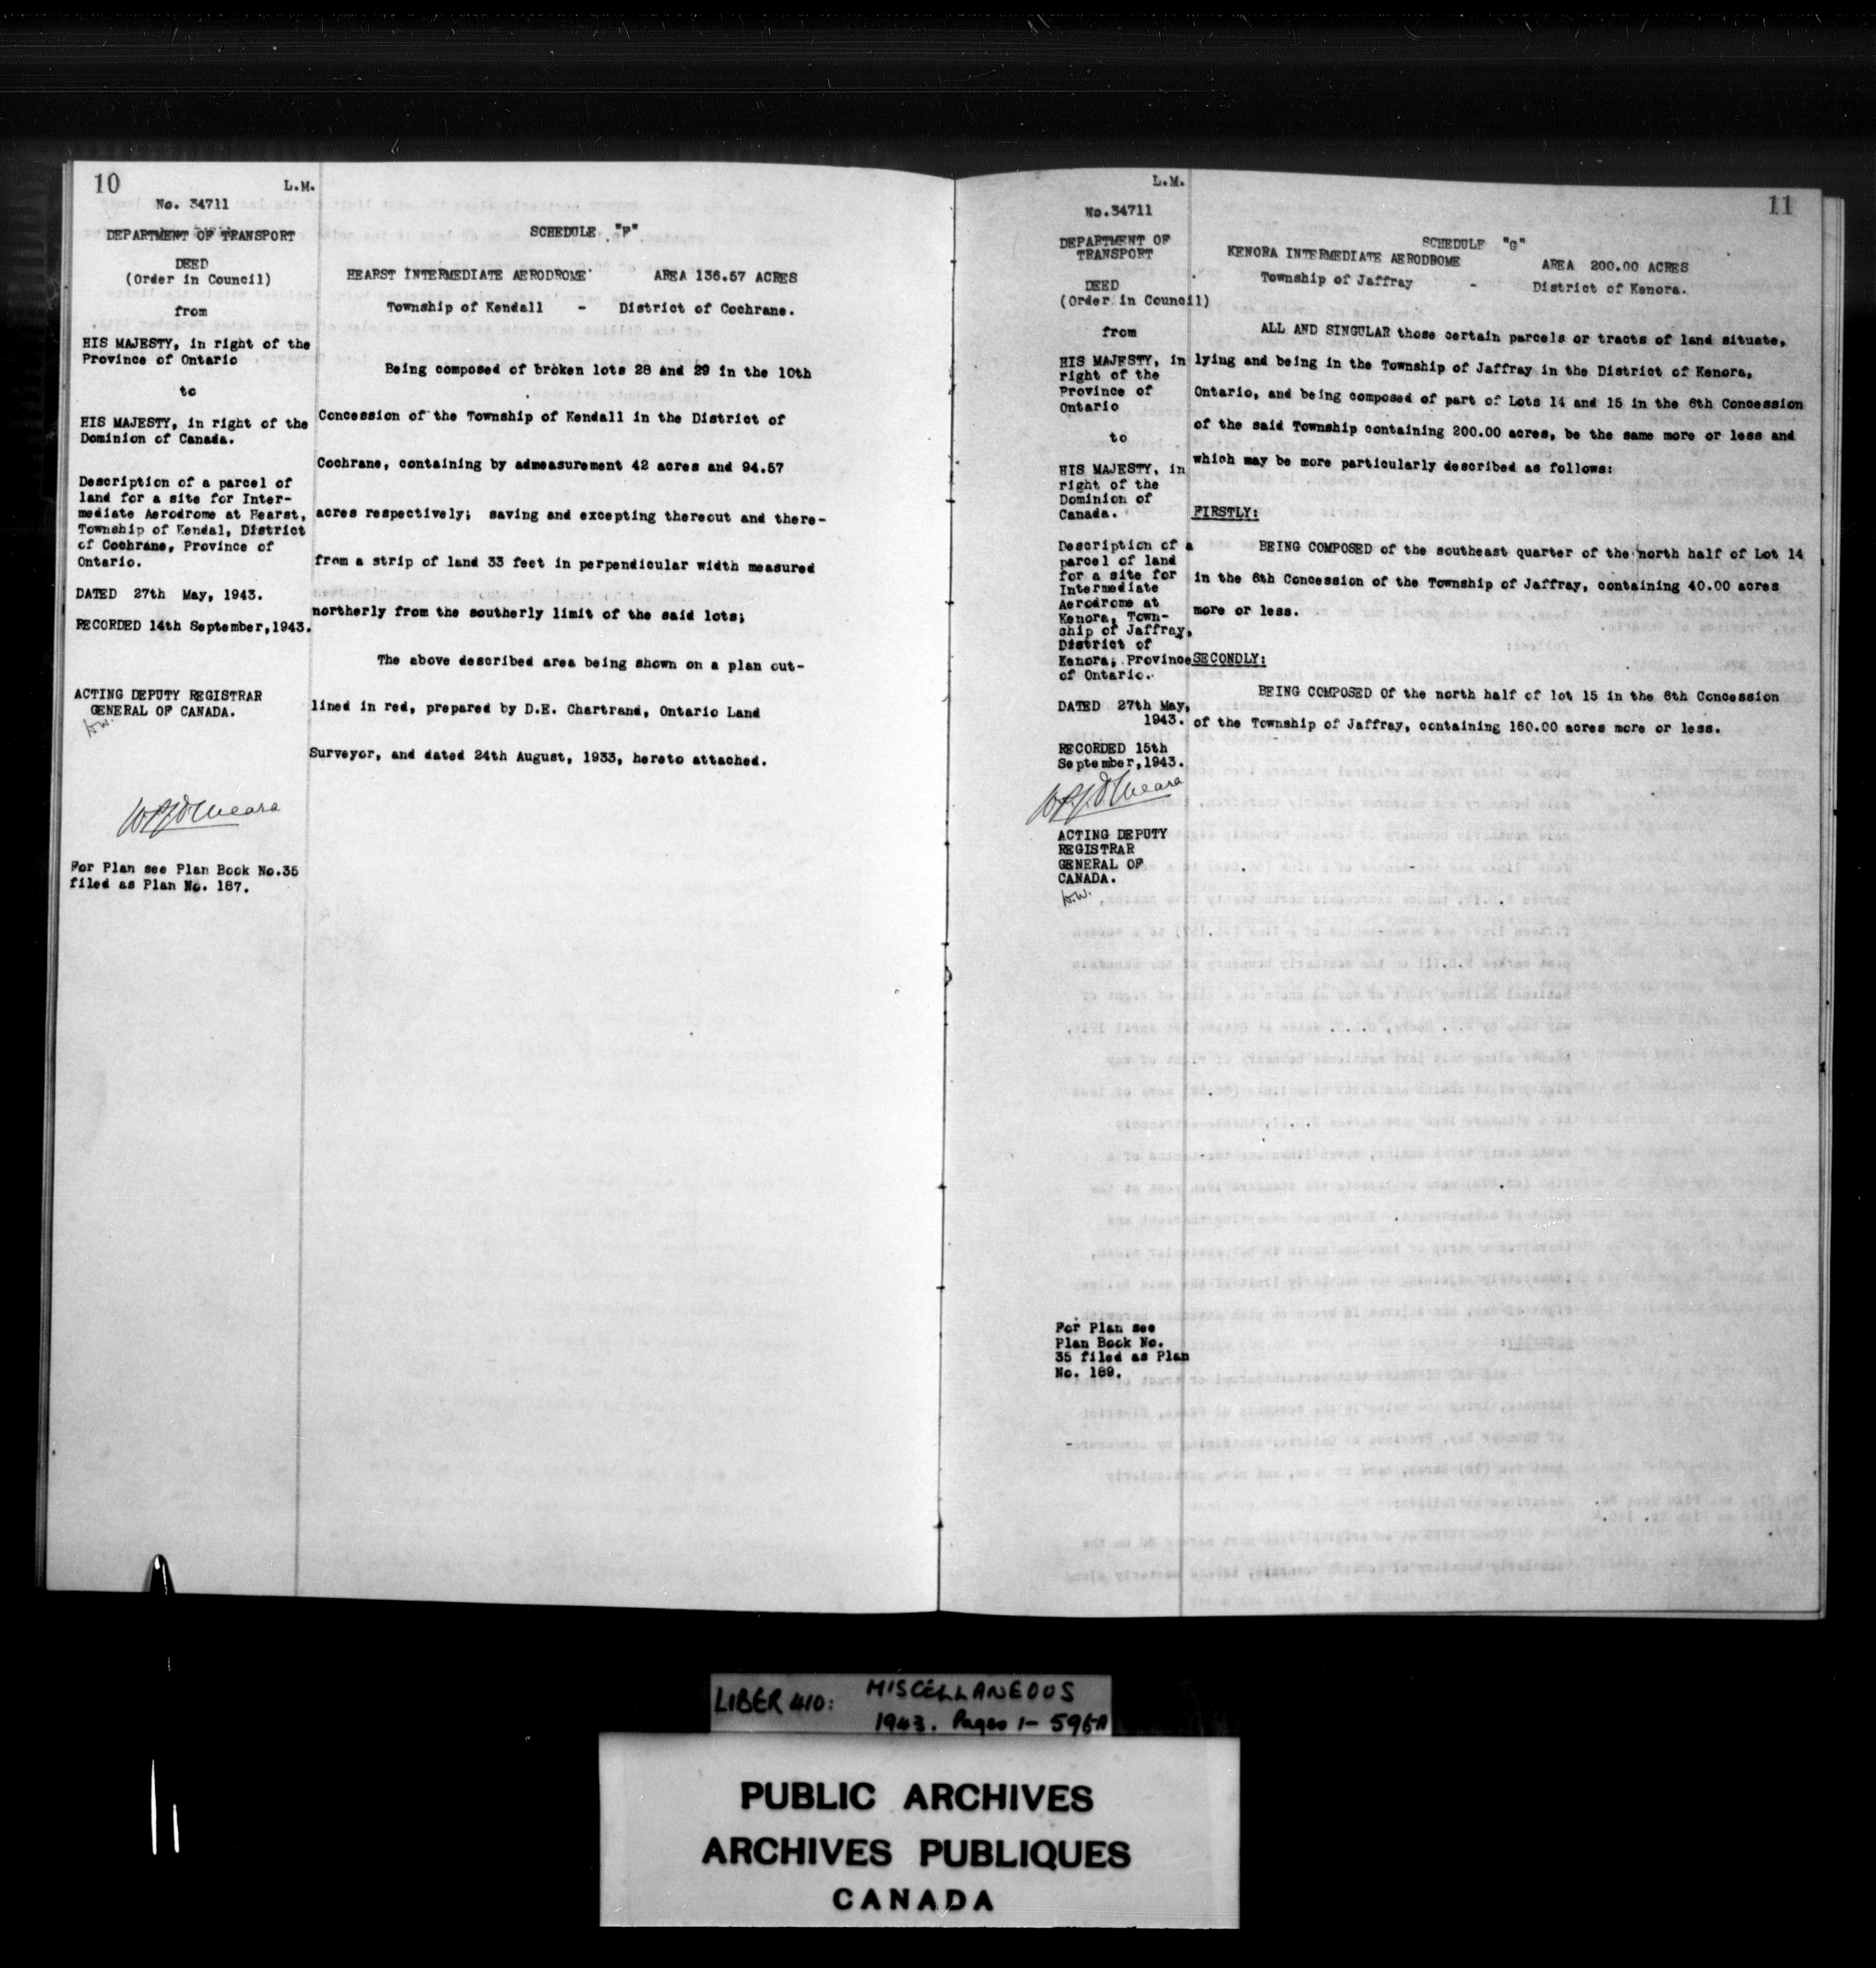 10
L.M.
No. 34711
DEPARTMENT OF TRANSPORT
DEED
(Order in Council)
from
HIS MAJESTY, in right of the
Province of Ontario
to
HIS MAJESTY, in right of the
Dominion of Canada.
Description of a parcel of
land for a site for Inter-
mediate Aerodrome at Hearst,
Township of Kendal, District
of Cochrane, Province of
Ontario.
DATED 27th May, 1943.
RECORDED 14th September,1943.
ACTING DEPUTY REGISTRAR
GENERAL OF CANADA.
For Plan see Plan Book No.35
filed as Plan No. 187.
SCHEDULE "F"
HEARST INTERMEDIATE AERODROME AREA 136.57 ACRES
Township of Kendall - District of Cochrane.
Being composed of broken lots 28 and 29 in the 10th
Concession of the Township of Kendall in the District of
Cochrane, containing by admeasurement 42 acres and 94.57
acres respectively; saving and excepting thereout and there-
from a strip of land 33 feet in perpendicular width measured
northerly from the southerly limit of the said lots;
The above described area being shown on a plan out-
lined in red, prepared by D.E. Chartrand, Ontario Land
Surveyor, and dated 24th August, 1933, hereto attached.
11
L.M.
No.34711
DEPARTMENT OF
TRANSPORT
DEED
(Order in Council)
from
HIS MAJESTY, in
right of the
Province of
Ontario
to
HIS MAJESTY, in
right of the
Dominion of
Canada.
Description of a
parcel of land
for a site for
Intermediate
Aerodrome at
Kenora, Town-
ship of Jaffray,
District of
Kenora, Province
of Ontario.
DATED 27th May,
1943.
RECORDED 15th
September,1943.
ACTING DEPUTY
REGISTRAR
GENERAL OF
CANADA.
For Plan see
Plan Book No.
35 filed as Plan
No. 189.
SCHEDULE "G"
KENORA INTERMEDIATE AERODROME AREA 200.00 ACRES
Township of Jaffray - District of Kenora.
ALL AND SINGULAR those certain parcels or tracts of land situate,
lying and being in the Township of Jaffray in the District of Kenora,
Ontario, and being composed of part of Lots 14 and 15 in the 6th Concession
of the said Township containing 200.00 acres, be the same more or less and
which may be more particularly described as follows:
FIRSTLY:
BEING COMPOSED of the southeast quarter of the north half of Lot 14
in the 6th Concession of the Township of Jaffray, containing 40.00 acres
more or less.
SECONDLY:
BEING COMPOSED Of the north half of lot 15 in the 6th Concession
of the Township of Jaffray, containing 160.00 acres more or less.
LIBER 410: MISCELLANEOUS
1943. Pages 1- 596A
PUBLIC ARCHIVES
ARCHIVES PUBLIQUES
CANADA